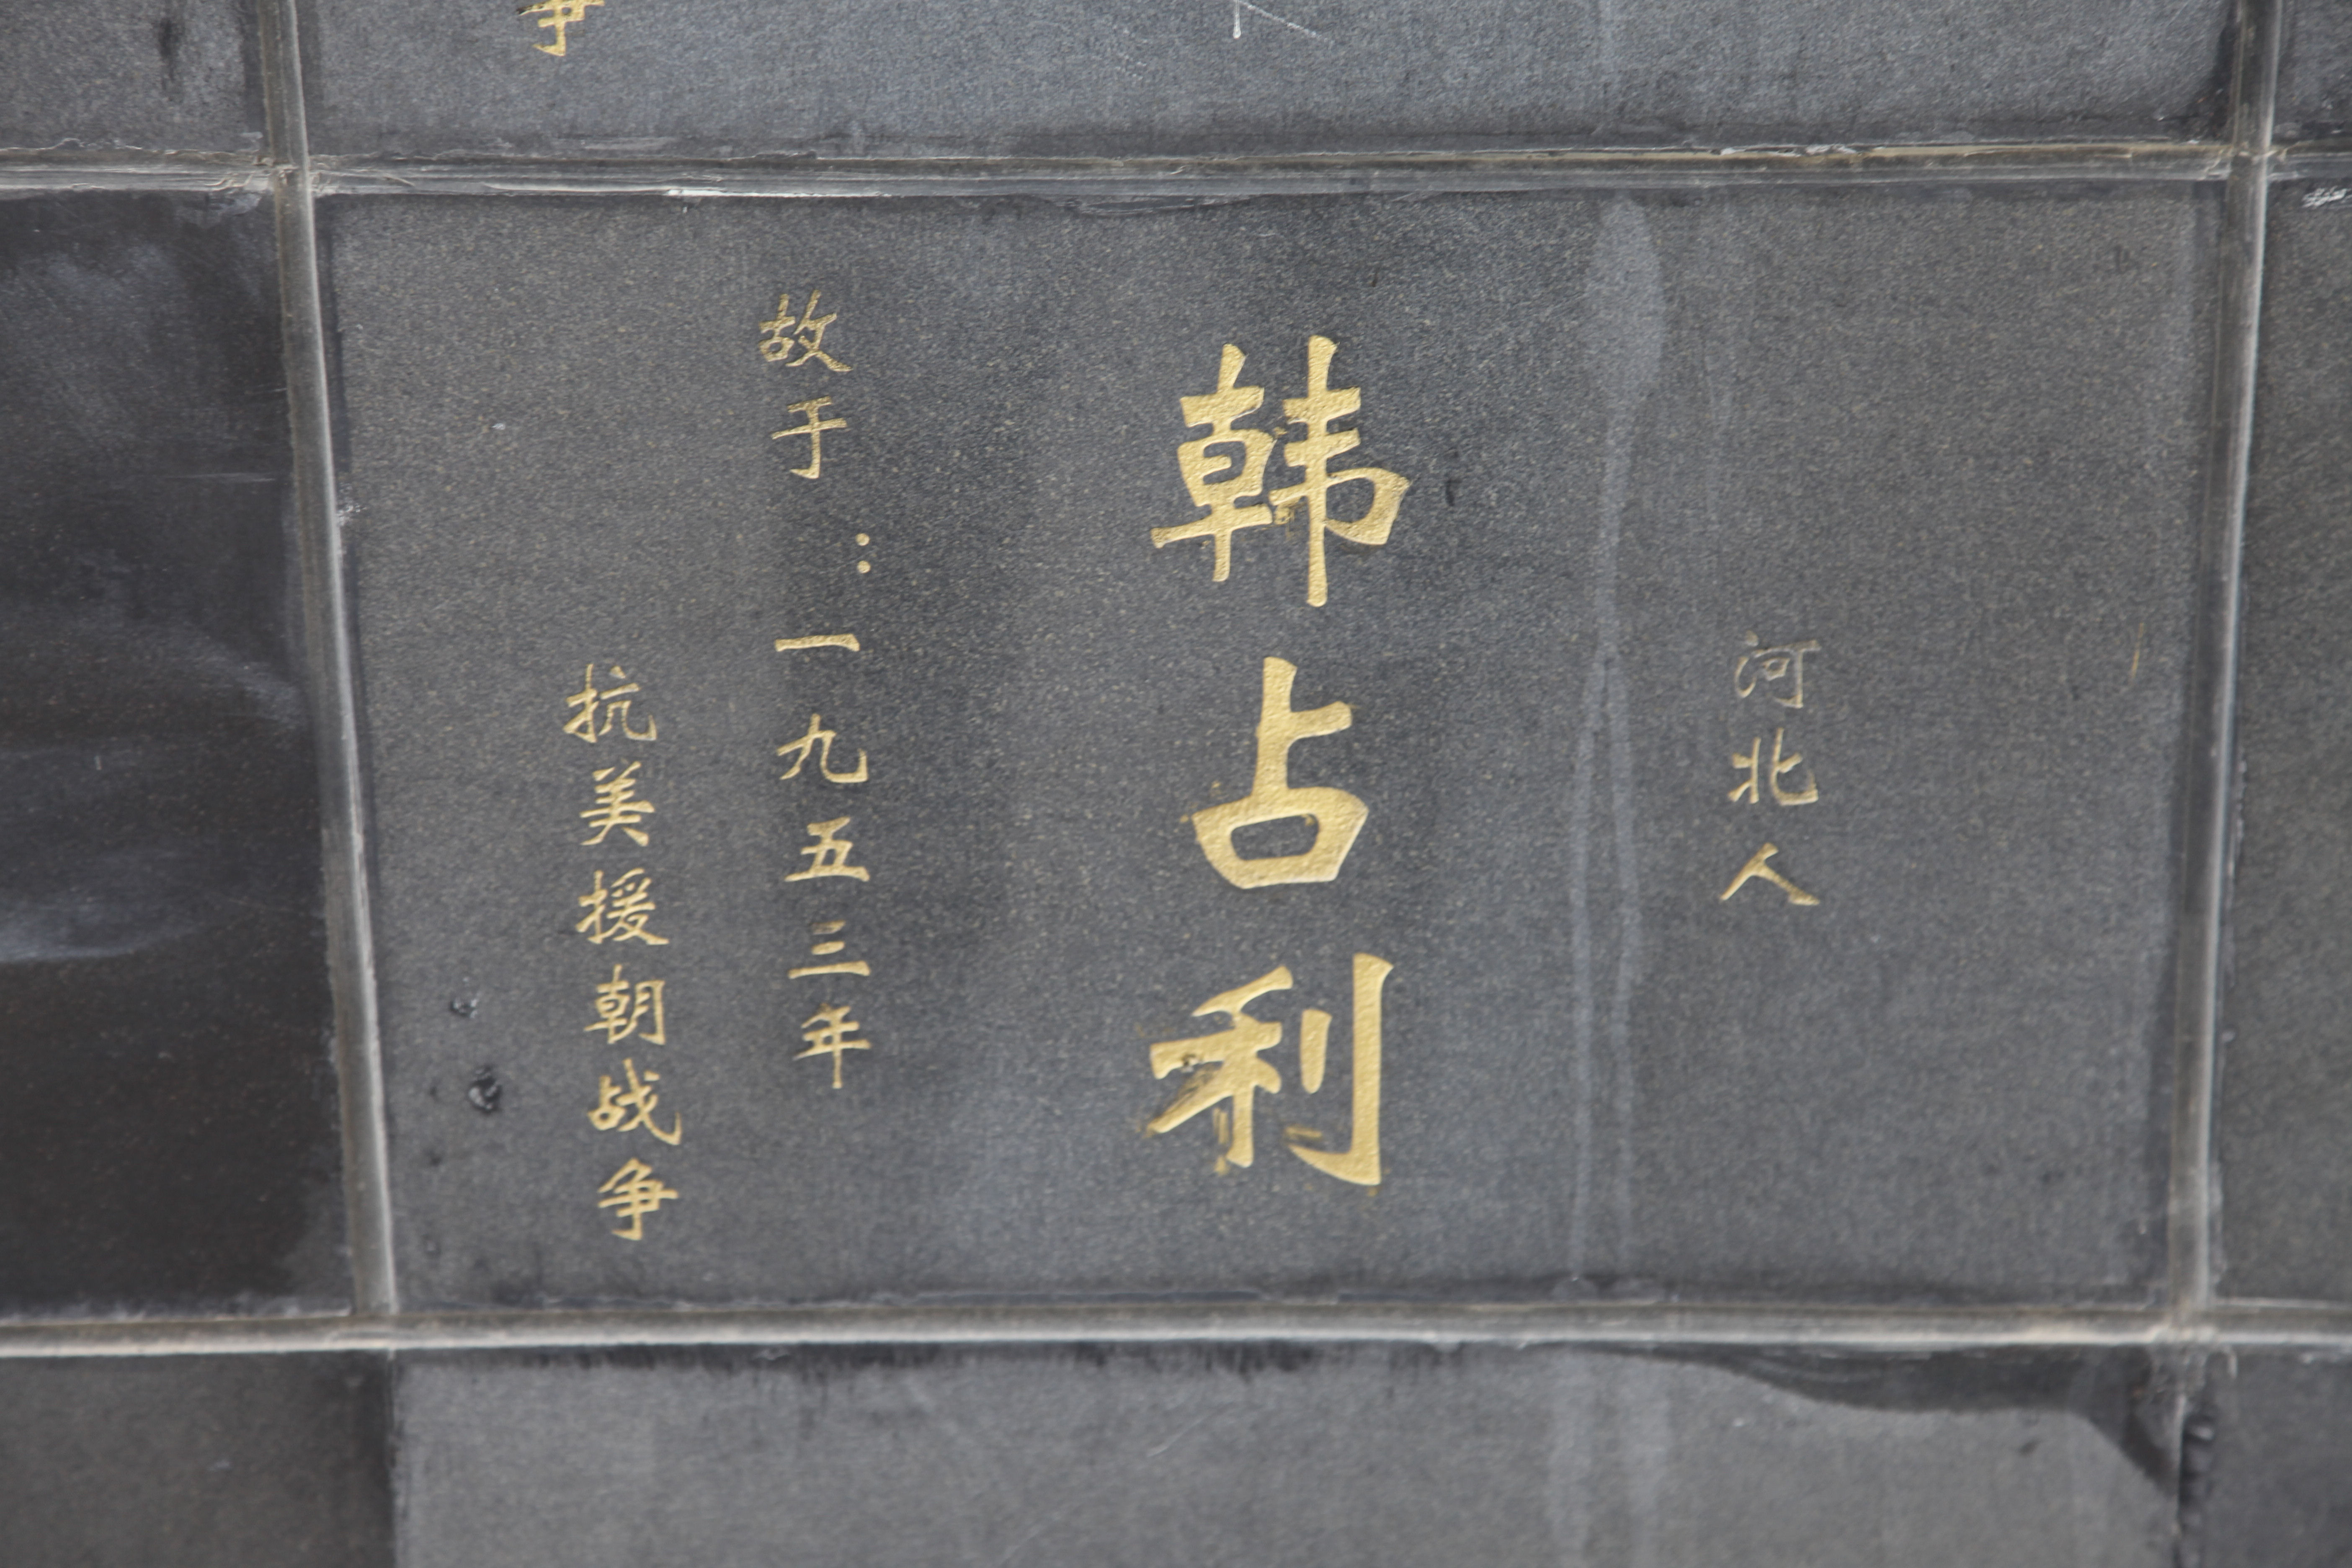 争
河北人
韩占利
故于：一九五三年
抗美援朝战争